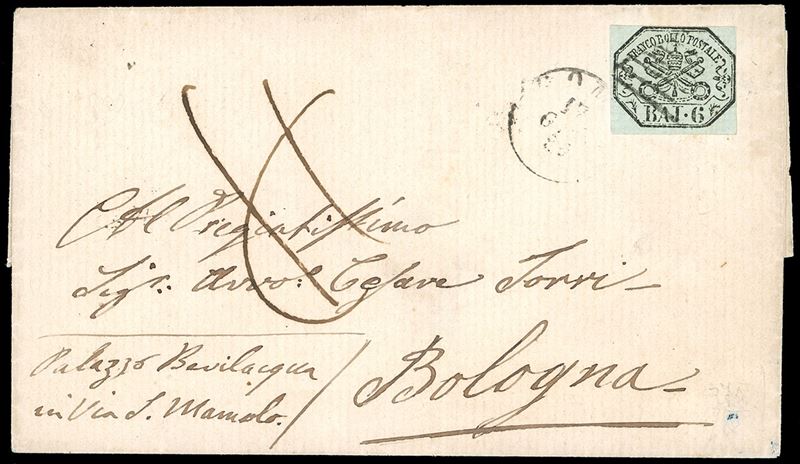 FRANCO BOLLO POSTALE
BAJ·6
Al Pregiatissimo
Sigr. Avvo. Cesare Torri
Palazzo Bevilacqua
in Via S. Mamolo.
Bologna